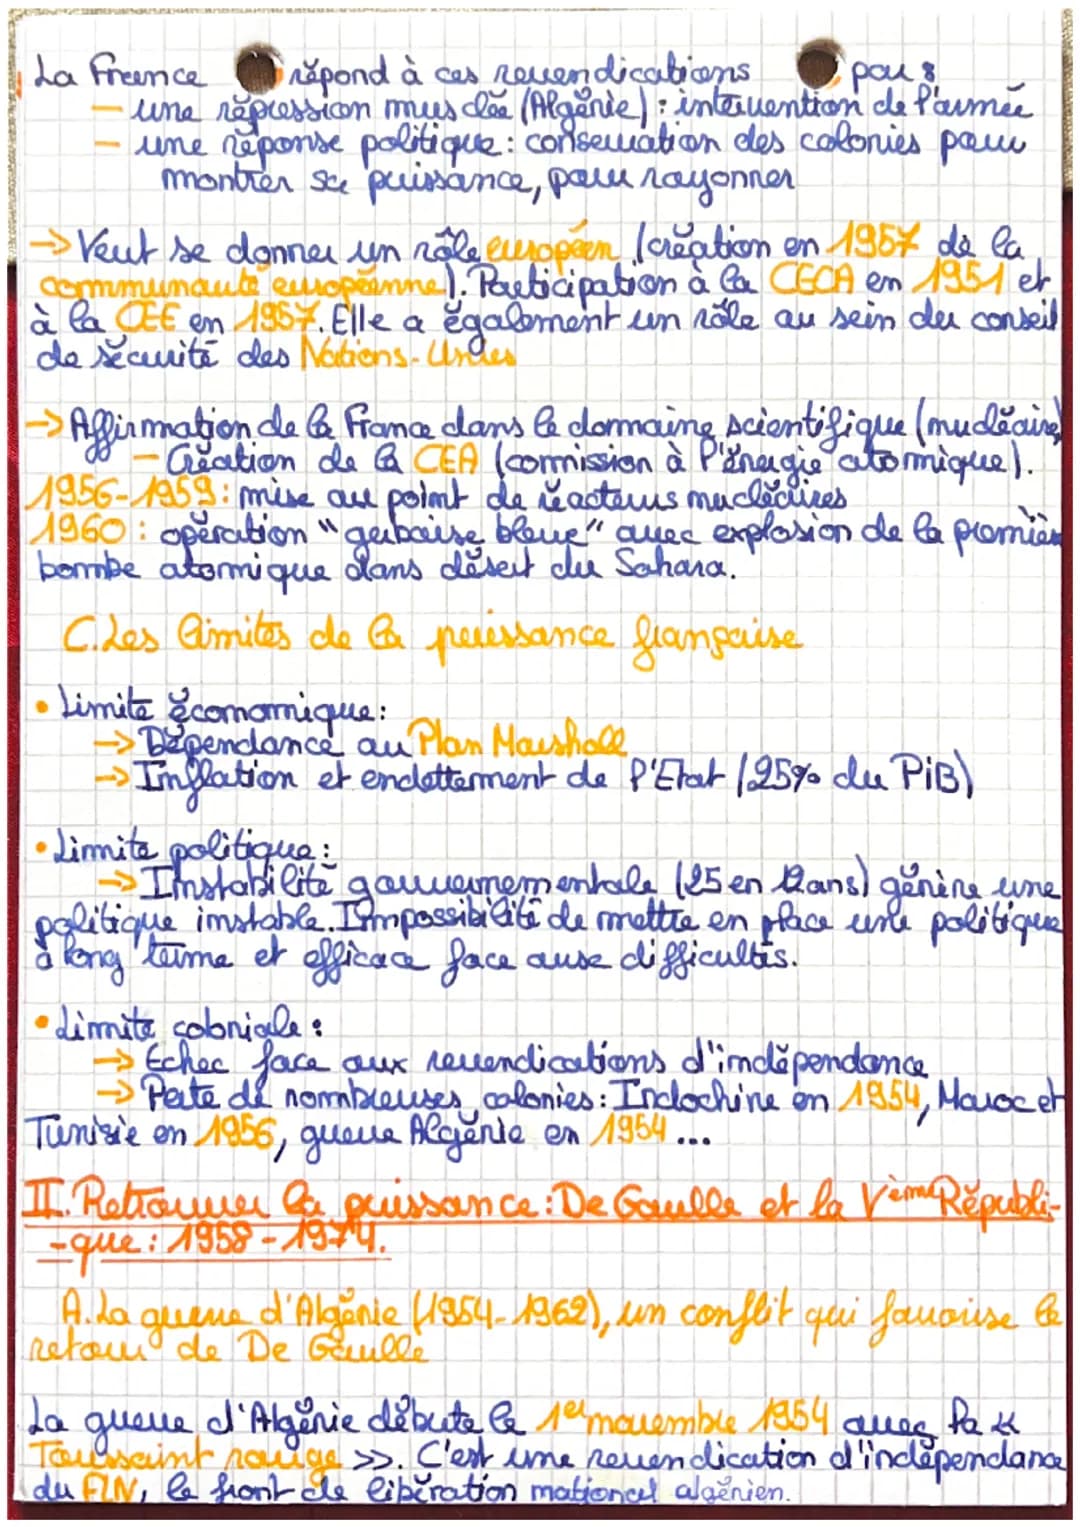 La France répond à ces revendications par :
— une répression musclée (Algérie) : intervention de l'armée
— une réponse politique : conservation des colonies pour
montrer sa puissance, pour rayonner
→ Veut se donner un rôle européen (création en 1957 de la
communauté européenne). Participation à la CECA en 1951 et
à la CEE en 1957. Elle a également un rôle au sein du conseil
de sécurité des Nations-Unies
→ Affirmation de la France dans le domaine scientifique (nucléaire)
— Création de la CEA (commission à l'énergie atomique).
1956-1959 : mise au point de réacteurs nucléaires
1960 : opération "gerboise bleue" avec explosion de la première
bombe atomique dans désert du Sahara.
C. Les limites de la puissance française
• Limite économique :
→ Dépendance au Plan Marshall
→ Inflation et endettement de l'Etat (25% du PiB)
• Limite politique :
→ Instabilité gouvernementale (25 en 12 ans) génère une
politique instable. Impossibilité de mettre en place une politique
à long terme et efficace face aux difficultés.
• Limite coloniale :
→ Echec face aux revendications d'indépendance
→ Perte de nombreuses colonies : Indochine en 1954, Maroc et
Tunisie en 1956, guerre Algérie en 1954...
II. Retrouver la puissance : De Gaulle et la Vème Républi-
-que : 1958 - 1974.
A. La guerre d'Algérie (1954-1962), un conflit qui favorise le
retour de De Gaulle
La guerre d'Algérie débute le 1er novembre 1954 avec la «
Toussaint rouge ». C'est une revendication d'indépendance
du FLN, le front de libération national algérien.